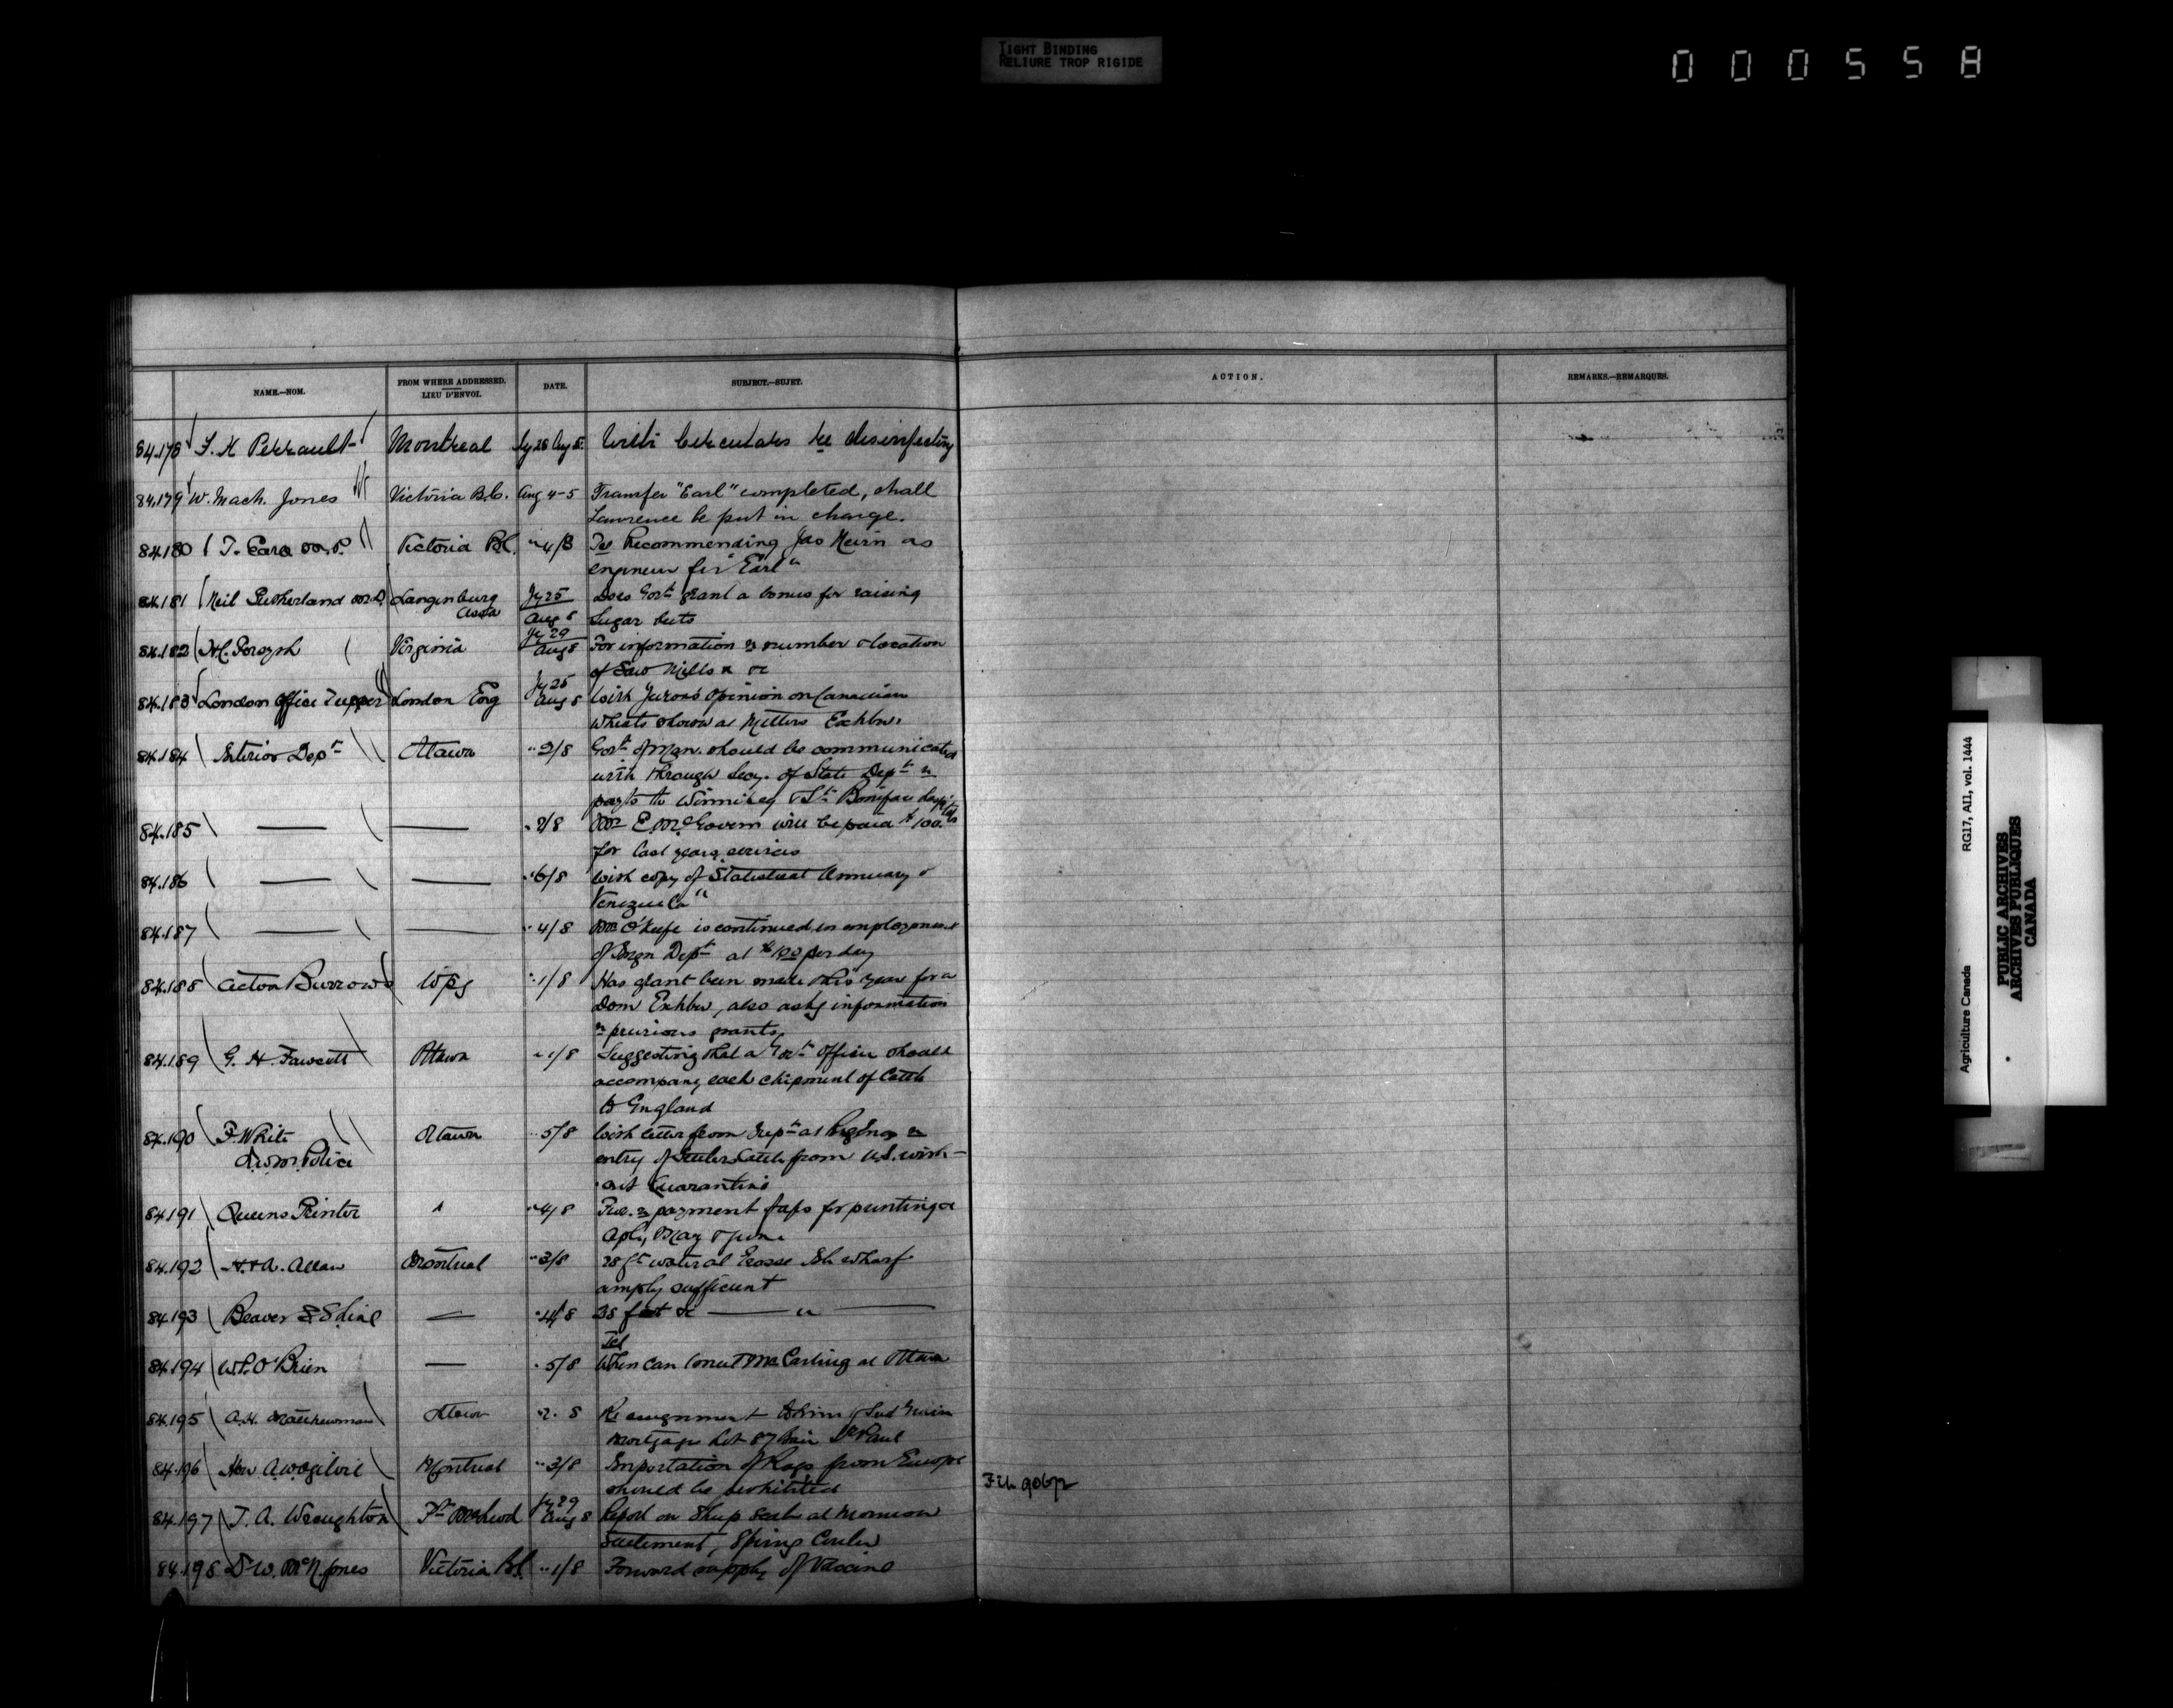 TIGHT BINDING
RELIURE TROP RIGIDE
000558
NAME.—NOM. FROM WHERE ADDRESSED. LIEU D'ENVOI. DATE. SUBJECT.—SUJET. ACTION. REMARKS.—REMARQUES.
84.178 Montreal Jy 28 Aug 5 With Circulars re disinfecting
84.179 W. Mach. Jones Victoria B.C. Aug 4-5 Transfer "Earl" completed, shall
Lawrence be put in charge.
84.180 Victoria B.C. Recommending Jas as
engineer for "Earl"
84.181 Neil Sutherland Langenburg Assa Jy 25 Aug 5 Does Govt grant a bonus for raising
Sugar beets
84.182 Virginia Jy 29 Aug 5 For information re number & location
of Saw Mills & &c
84.183 London Office Tupper London Eng Jy 25 Aug 5 With opinion on Canadian
wheats shown at Millers Exhbn
84.184 Interior Dept Ottawa " 2/8 Govt of Man. should be communicated
with through Secy. of State Dept re
to Winnipeg & St Boniface
84.185 " 2/8 E. McGovern will be paid $100.
for last years services
84.186 " 6/8 With copy of Statistical Annuary of
Venezuela"
84.187 " 4/8 O'Keefe is continued in employment
of Dept at per day
84.188 Acton Burrows Wpg " 1/8 Has grant been made this year for a
Dom Exhbn, also asks information
re previous grants
84.189 G. H. Fawcett Ottawa " 1/8 Suggesting that a Govt Officer should
accompany each shipment of Cattle
to England
84.190 F. White Ottawa " 5/8 With letter from at Regina re
N.W.M. Police entry of Settlers Cattle from U.S. with-
out Quarantine
84.191 Queens Printer " " 4/8 payment for printing &c
Apl, May & June
84.192 H. & A. Allan Montreal " 3/8 28 ft water at Grosse Isle wharf
amply sufficient
84.193 Beaver S.S. Line — " 4/8 28 feet &c — " —
Tel
84.194 W.P. O'Brien — " 5/8 When can I meet Mr Carling at Ottawa
84.195 Ottawa Re assignment to him of
mortgage Lot 87 St Paul
84.196 Hon A.W. Ogilvie Montreal " 3/8 Importation of Rags from Europe
should be prohibited
84.197 T. A. Wroughton Ft McLeod Jy 29 Aug 5 Report on Sheep Scab at Mormon
Settlement,
84.198 Dr W. McN Jones Victoria B.C. " 1/8 Forward supply of Vaccine
Agriculture Canada RG17, AI1, vol. 1444
PUBLIC ARCHIVES
ARCHIVES PUBLIQUES
CANADA